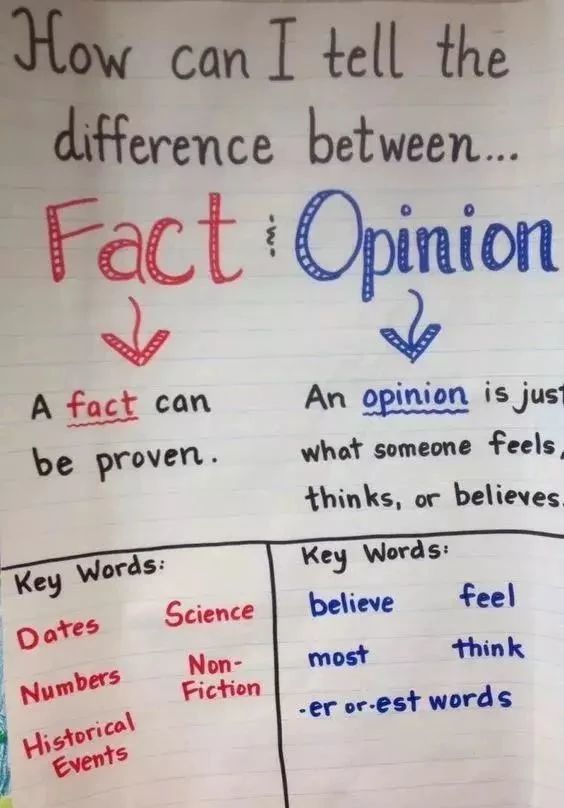 How can I tell the
difference between...
Fact & Opinion
A fact can
be proven.
An opinion is just
what someone feels,
thinks, or believes.
Key Words:
Dates Science
Numbers Non-
Fiction
Historical
Events
Key Words:
believe feel
most think
-er or -est words